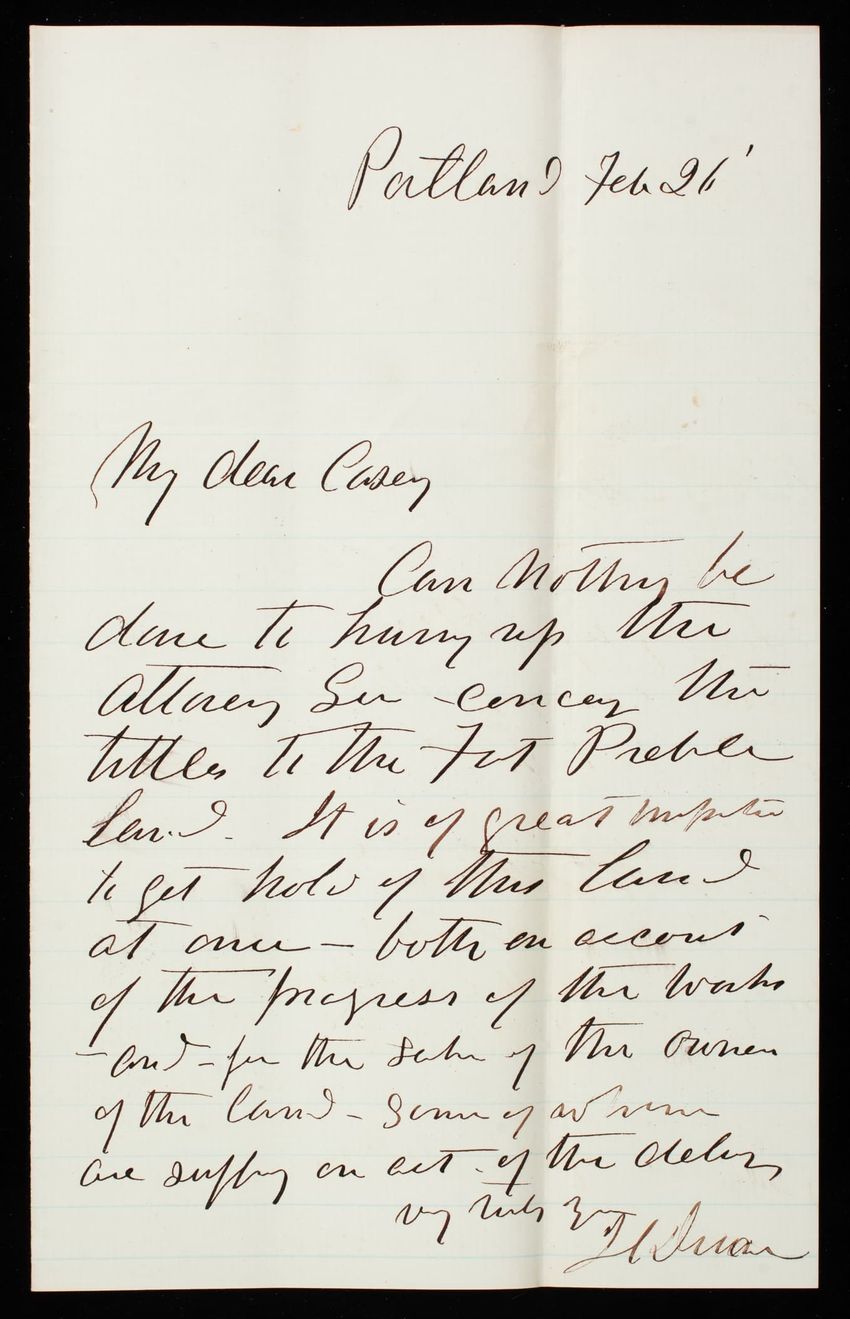 Portland Feb 26'
My dear Casey
Can nothing be
done to hurry up the
Attorney Gen - concey the
tittles to the Fort Preble
land. It is of great
to get hold of this land
at once - both on account
of the progress of the works
- and - for the sake of the owners
of the land - some of whom
are suffing on act. of the delay
very truly yrs
J C Duane